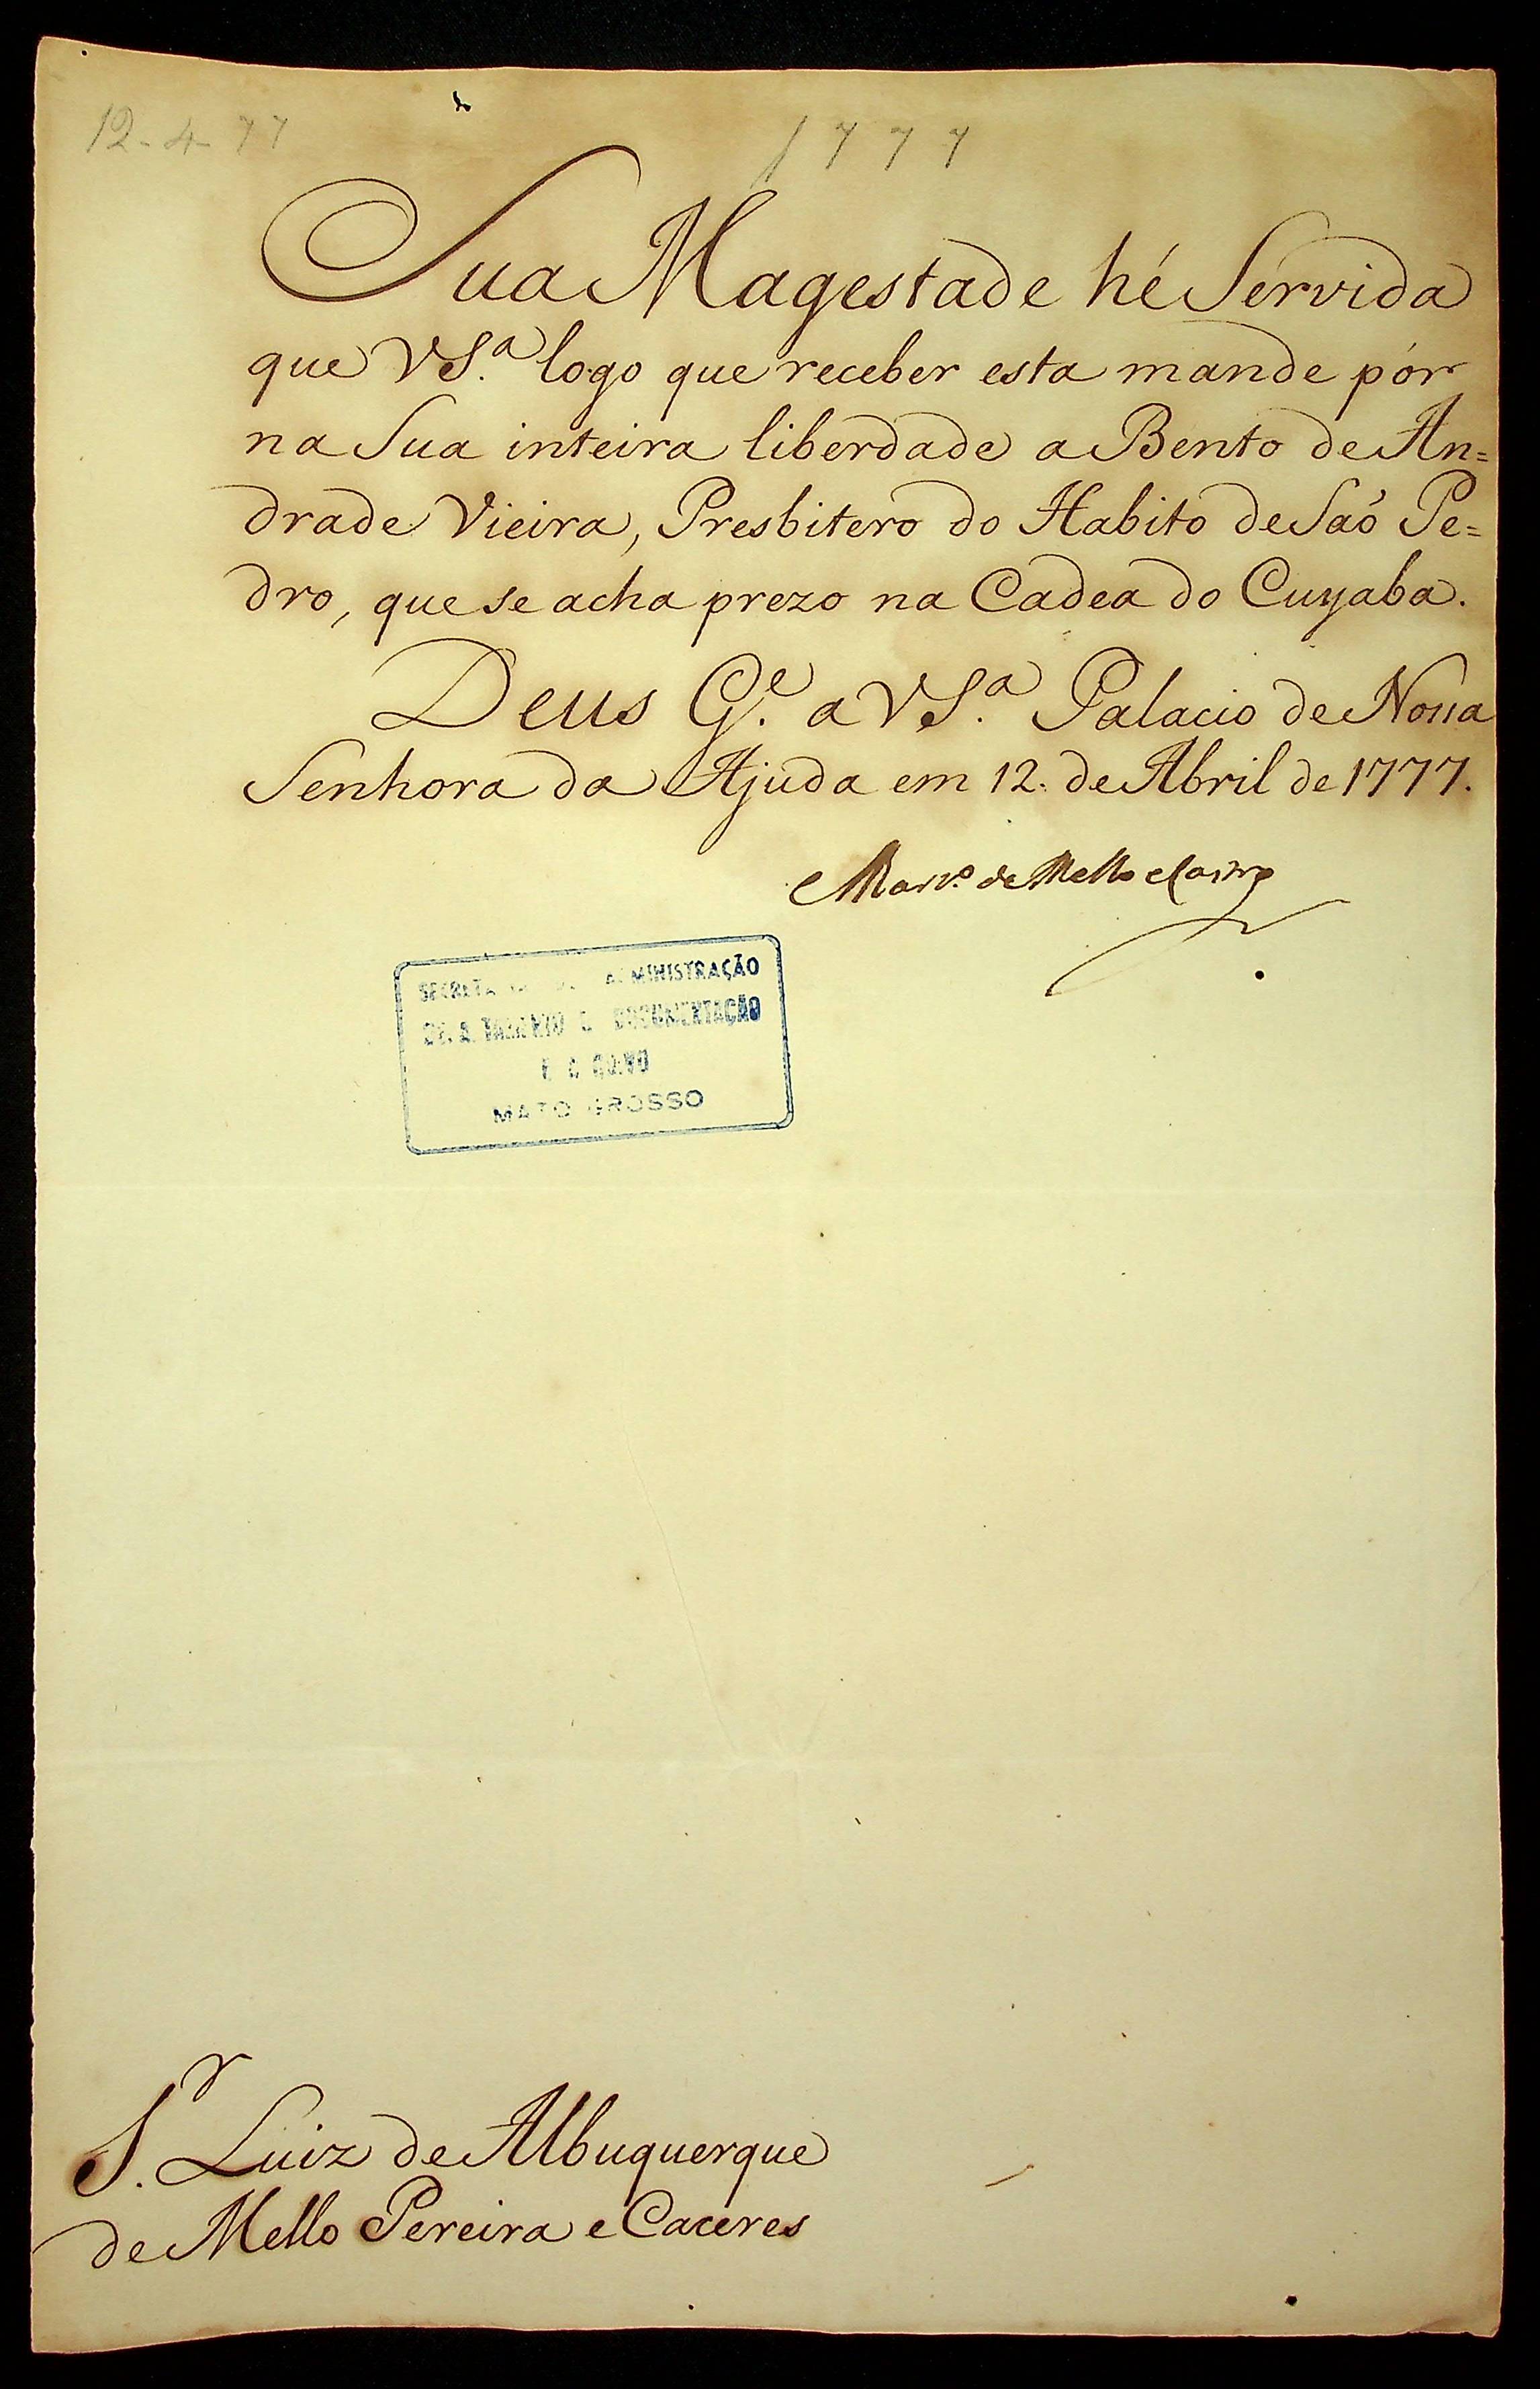 12-4-77
1777
Sua Magestade hé Servida
que VS.ª logo que receber esta mande pór
na Sua inteira liberdade a Bento de An=
drade Vieira, Presbitero do Habito de Saó Pe=
dro, que se acha prezo na Cadea do Cuyaba.
Deus G.e a VS.ª Palacio de Nossa
Senhora da Ajuda em 12. de Abril de 1777.
Mart.o de Mello e Castro
ADMINISTRAÇÃO
DOCUMENTAÇÃO
MATO GROSSO
S.r Luiz de Albuquerque
de Mello Pereira e Caceres